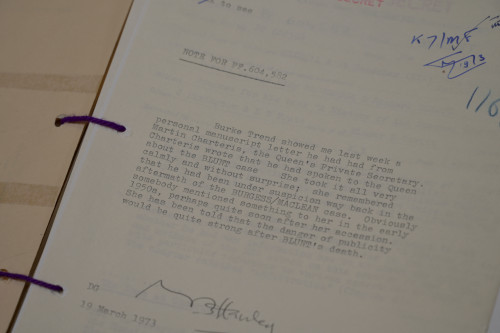 to see
SECRET
K7/M5
NOTE FOR PF.604,582
Burke Trend showed me last week a
personal manuscript letter he had had from
Martin Charteris, the Queen's Private Secretary.
Charteris wrote that he had spoken to the Queen
about the BLUNT case. She took it all very
calmly and without surprise; she remembered
that he had been under suspicion way back in the
aftermath of the BURGESS/MACLEAN case. Obviously
somebody mentioned something to her in the early
1950s, perhaps quite soon after her accession.
She has been told that the danger of publicity
would be quite strong after BLUNT's death.
DG
19 March 1973